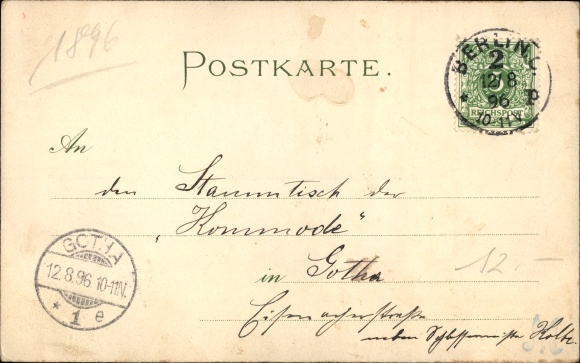 1896
POSTKARTE.
BERLIN
2
12/8
96
10-11V.
REICHSPOST
An
den Stammtisch der
„Kommode“
in Gotha
12.-
GOTHA
12.8.96 10-11N.
* 1 e
Eisenacherstraße
neben Schlossermeister Kolbe